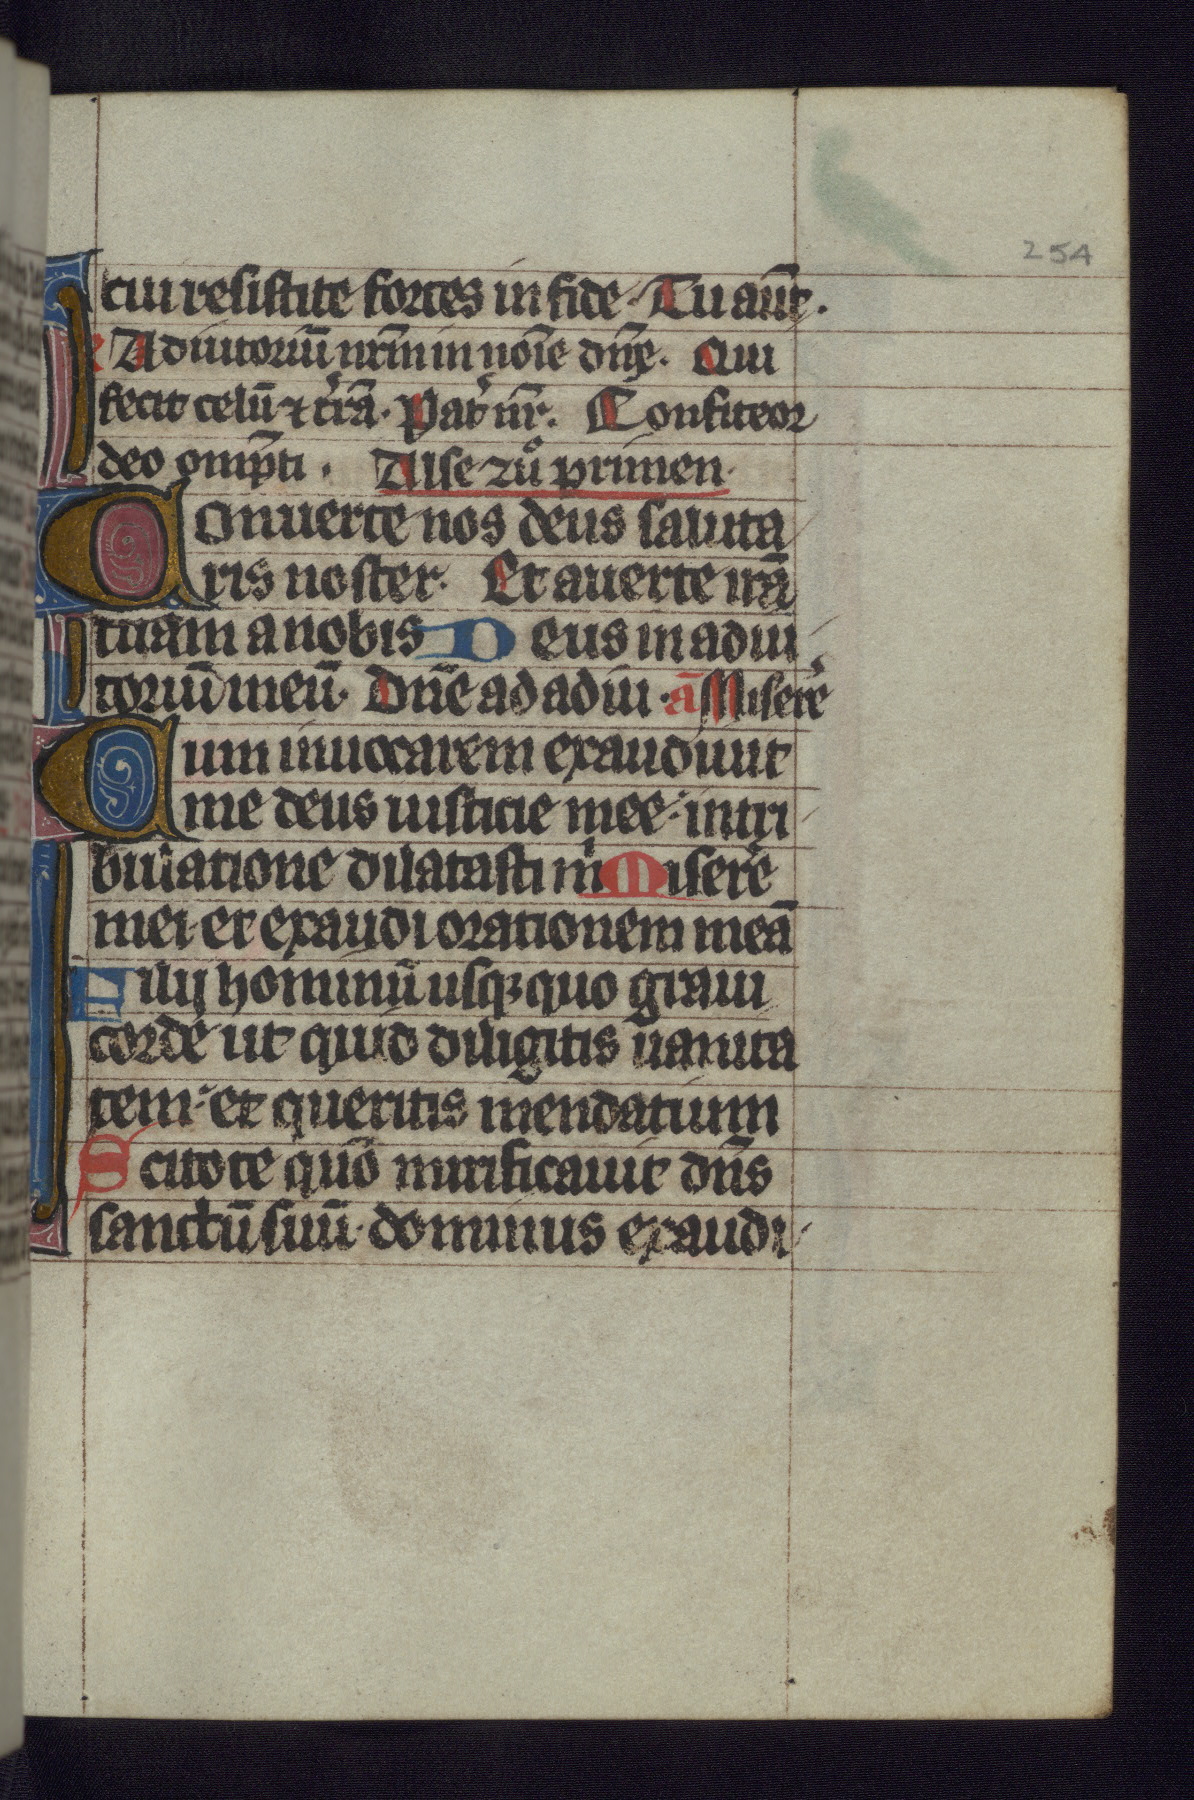 254
cui resistite fortes in fide. Tu aūt.
Adiutoriū nr̄m in noīe dn̄e. Qui
fecit celū ⁊ tr̄ā. Pat̾ nr̄. Confiteor
deo omp̄ti. Alse zuͦ primen.
Conuerte nos deus saluta
ris noster. Et auerte irā
tuam a nobis Deus in adiu
toriū meū. Dn̄e ad adiu. ā Miserē
Cum inuocarem exaudiuit
me deus iusticie mee. in tri
bulatione dilatasti mͥ Miserē
mei et exaudi orationem meā
Filij hominū usqꝫ quo graui
corde ut quid diligitis uanita
tem et queritis mendatium
Scitote quō mirificauit dn̄s
sanctū suū. dominus exaudi